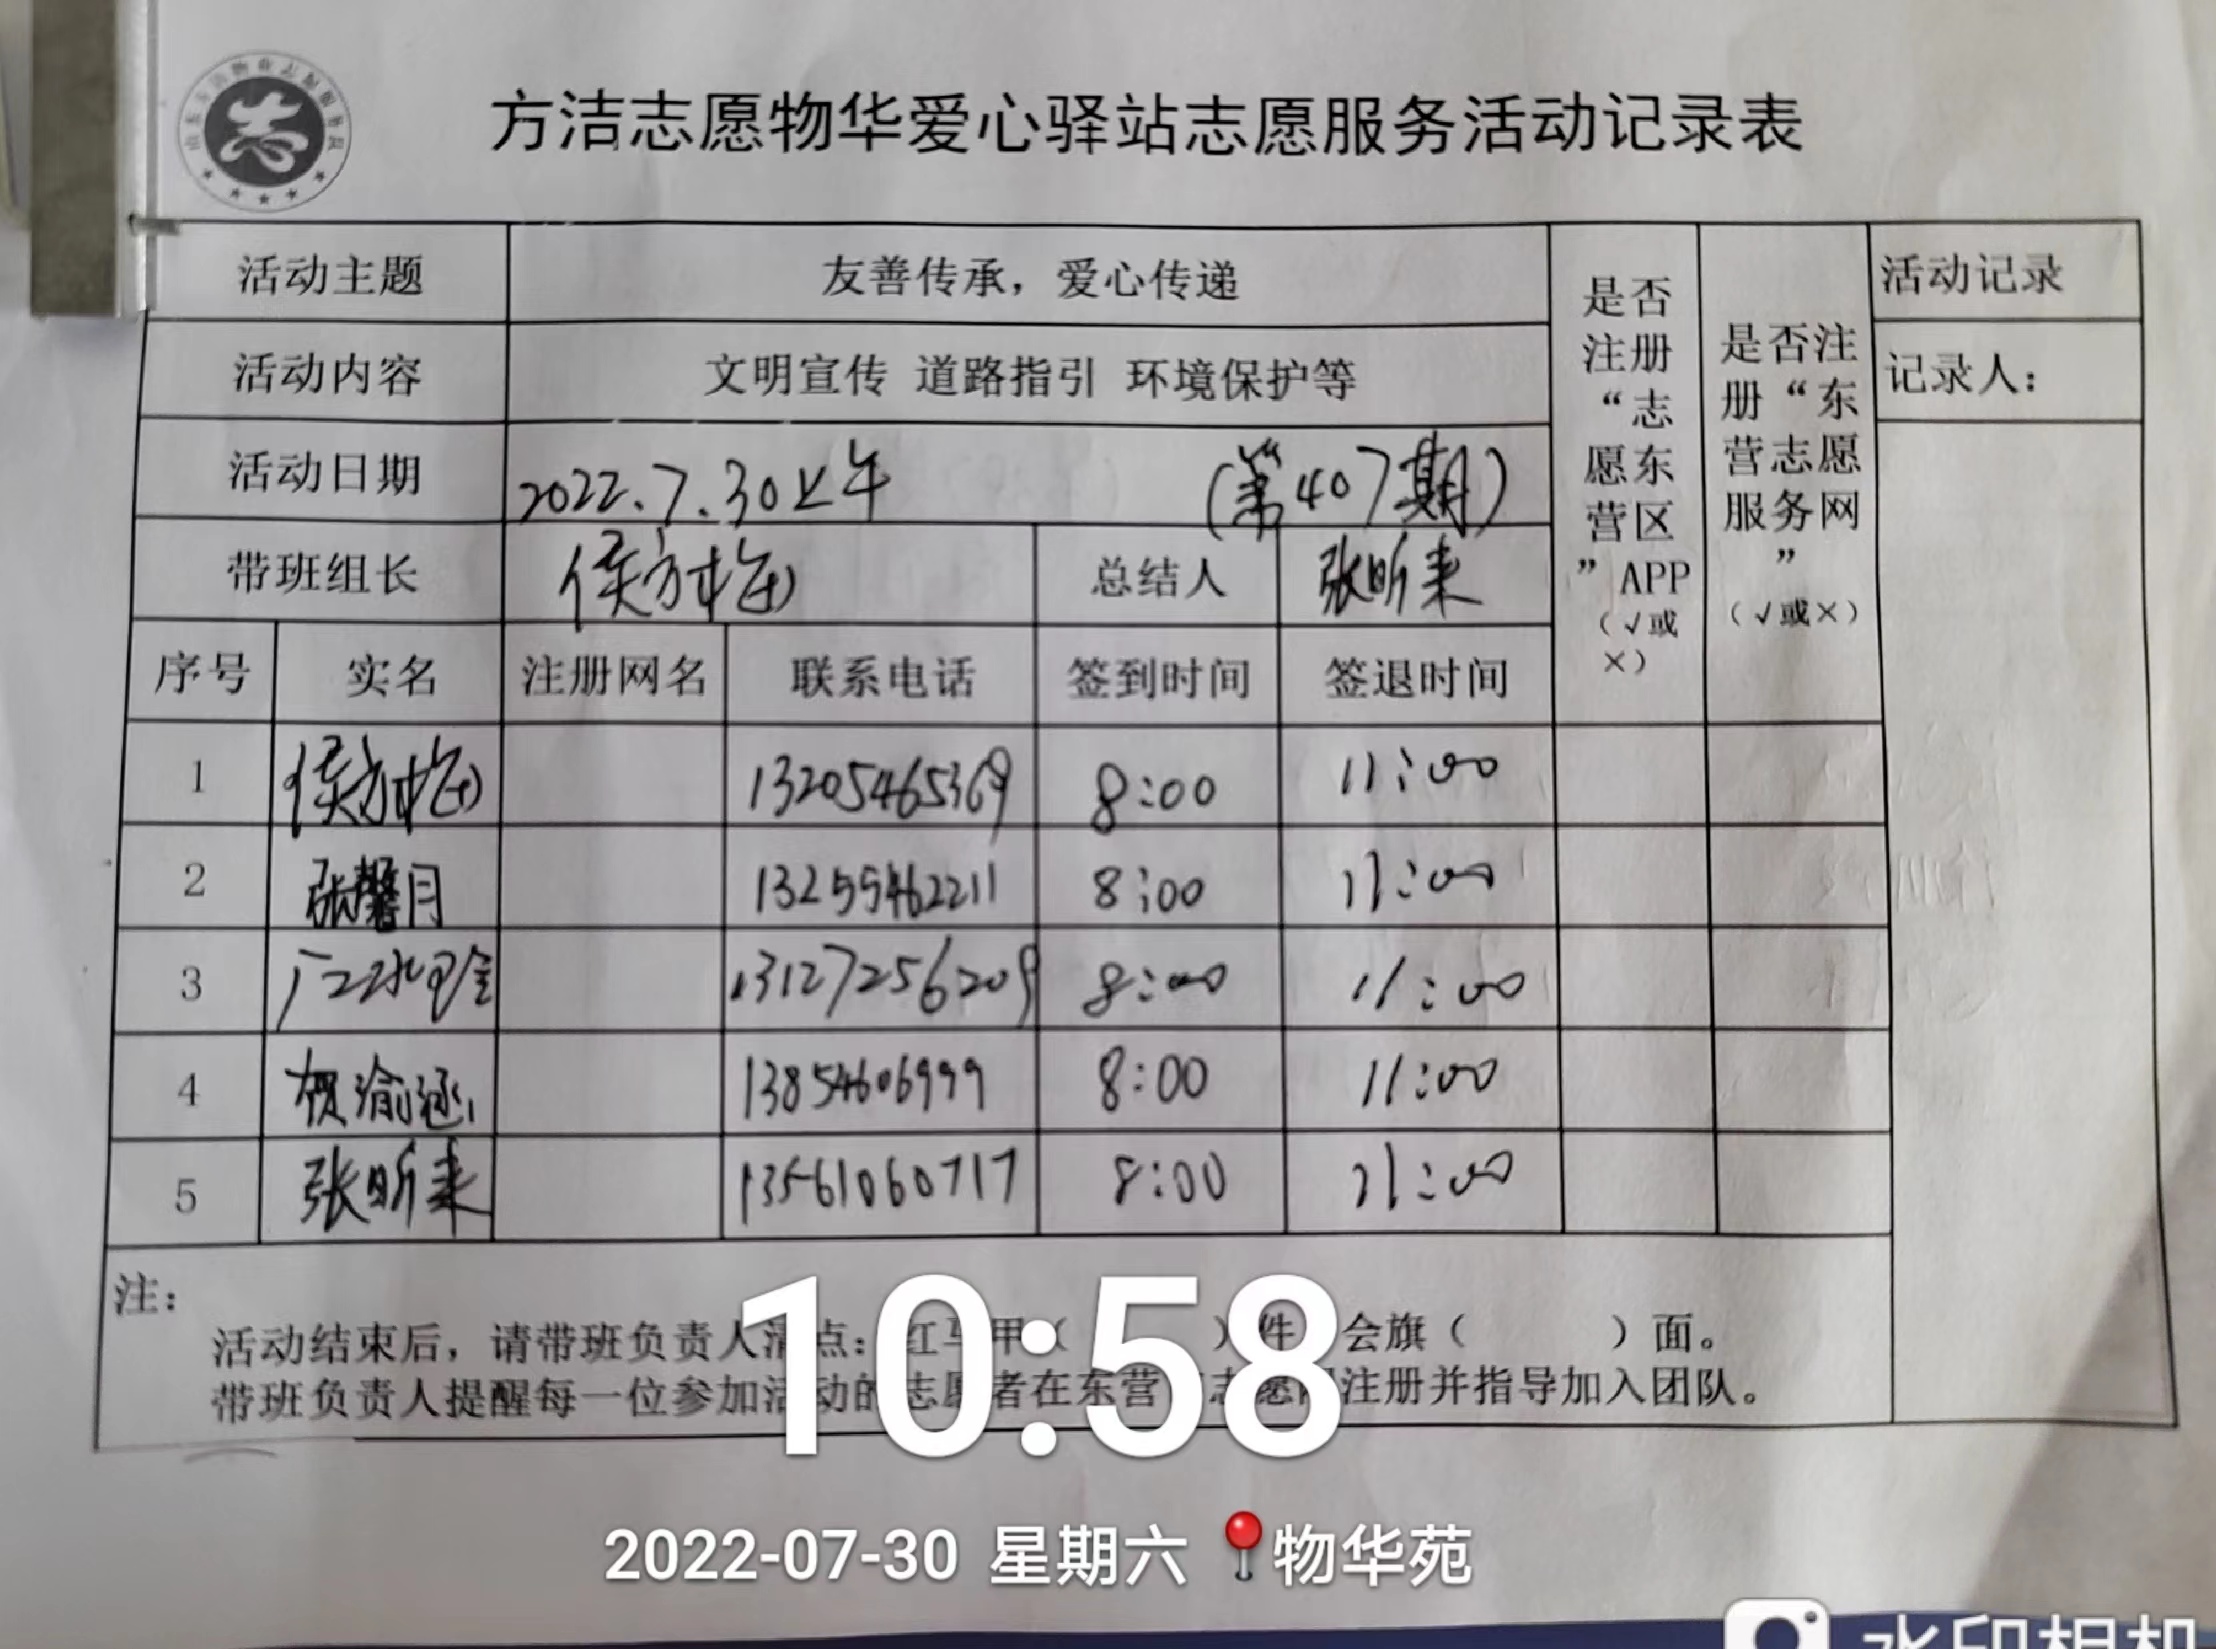 方洁志愿物华爱心驿站志愿服务活动记录表
活动主题 友善传承，爱心传递 是否注册“志愿东营区”APP（√或×） 是否注册“东营志愿服务网”（√或×） 活动记录
活动内容 文明宣传 道路指引 环境保护等 记录人：
活动日期 2022.7.30上午 （第407期）
带班组长 侯方梅 总结人 张昕来
序号 实名 注册网名 联系电话 签到时间 签退时间
1 侯方梅 13205465369 8:00 11:00
2 张馨月 13255462211 8:00 11:00
3 13127256209 8:00 11:00
4 贺渝涵 13854606999 8:00 11:00
5 张昕来 13561060717 8:00 11:00
注：
活动结束后，请带班负责人清点：红马甲（ ）件 会旗（ ）面。
带班负责人提醒每一位参加活动的志愿者在东营 志愿网注册并指导加入团队。
10:58
2022-07-30 星期六 物华苑
水印相机